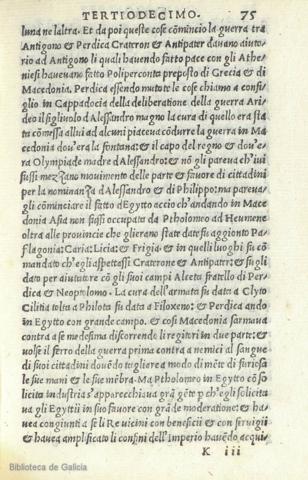 TERTIODECIMO. 75
luna ne laltra. Et da poi queste cose cõmincio la guerra tra
Antigono & Perdica Crateron & Antipater davano aiuto-
rio ad Antigono li quali havendo fatto pace con gli Athe
niesi havevano fatto Poliperconta preposto di Grecia & di
Macedonia. Perdica essendo mutate le cose chiamo a consi
glio in Cappadocia della deliberatione della guerra Ari-
deo il figliuolo d'Alessandro magno la cura di quello era sta
ta cõmessa allui ad alcuni piaceva cõdurre la guerra in Ma
cedonia dov'era la fontana: & il capo del regno & dov'e-
ra Olympiade madre d'Alessandro: & nõ gli pareva ch'ivi
fussi mezzano movimento delle parte & favore di cittadini
per la nominanza d'Alessandro & di Philippo: ma pareva-
gli cõminciare il fatto d'Egytto accio ch'andando in Mace
donia Asia non fussi occupato da Ptholomeo ad Heumene
oltra alle provincie che glierano state date fu aggionto Pa-
flagonia: Caria: Licia: & Frigia: & in quelli luoghi fu cõ
mandato ch'egli aspettassi Craterone & Antipater: & fugli
dato per aiutatore cõ gli suoi campi Aleeta fratello di Per-
dica & Neoptolomo. La cura dell'armata fu data a Clyto
Cilitia tolta a Philota fu data a Filoxeno: & Perdica ando
in Egytto con grande campo. & cosi Macedonia s'armava
contra a se medesima discorrendo li regitori in due parte: &
volse il ferro della guerra prima contra a nemici al sangue
di suoi cittadini dovẽdo tagliare a modo di mẽte di furiosa
le sue mani & le sue mẽbra. Ma Ptholomeo in Egytto cõ so
licita industria s'apparechiava grã gẽte p ch'egli solicita
va gli Egyttii in suo favore con grãde moderatione: & ha-
vea congiunti a se li Re vicini con beneficii & con servigii
& havea amplificato li confini dell'Imperio havẽdo acqui
K iii
Biblioteca de Galicia